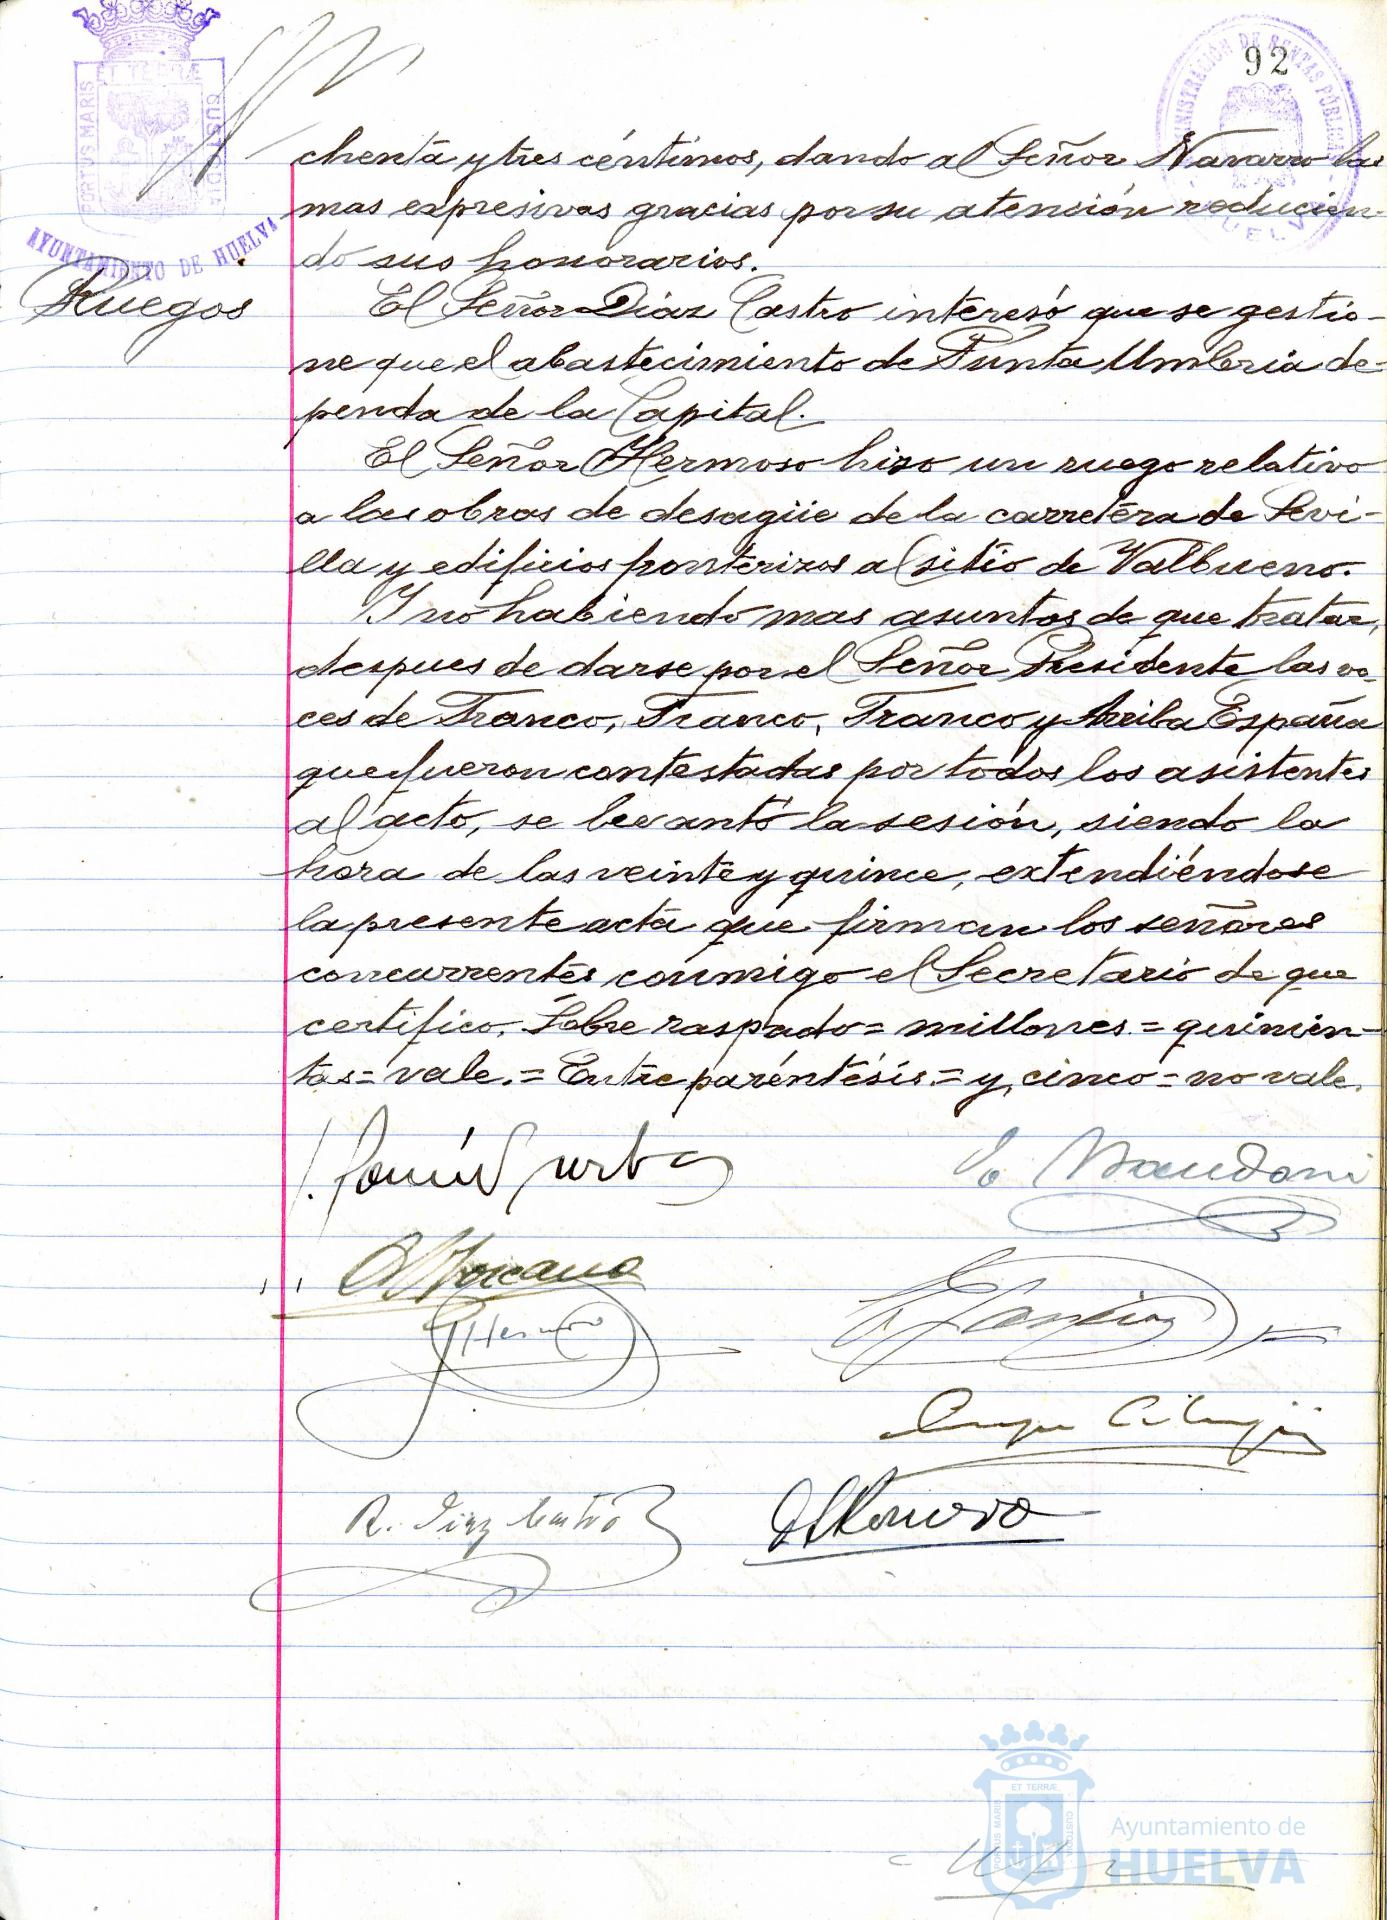 92
PORTUS MARIS ET TERRÆ CUSTODIA
AYUNTAMIENTO DE HUELVA
ADMINISTRACIÓN DE RENTAS PÚBLICAS
HUELVA
chenta y tres céntimos, dando al Señor Navarro las
mas expresivas gracias por su atención reducien-
do sus honorarios.
Ruegos
El Señor Díaz Castro interesó que se gestio-
ne que el abastecimiento de Punta Umbria de-
penda de la Capital.
El Señor Hermoso hizo un ruego relativo
a las obras de desagüe de la carretera de Sevi-
lla y edificios fronterizos al sitio de Valbueno.
Y no habiendo mas asuntos de que tratar,
despues de darse por el Señor Presidente las vo-
ces de Franco, Franco, Franco y Arriba España
que fueron contestadas por todos los asistentes
al acto, se levantó la sesión, siendo la
hora de las veinte y quince, extendiéndose
la presente acta que firman los señores
concurrentes conmigo el Secretario de que
certifico. Sobre raspado = millones = quinien-
tas = vale. = Entre paréntésis = y, cinco = no vale.
R. Diaz Castro
PORTUS MARIS ET TERRÆ CUSTODIA
Ayuntamiento de
HUELVA